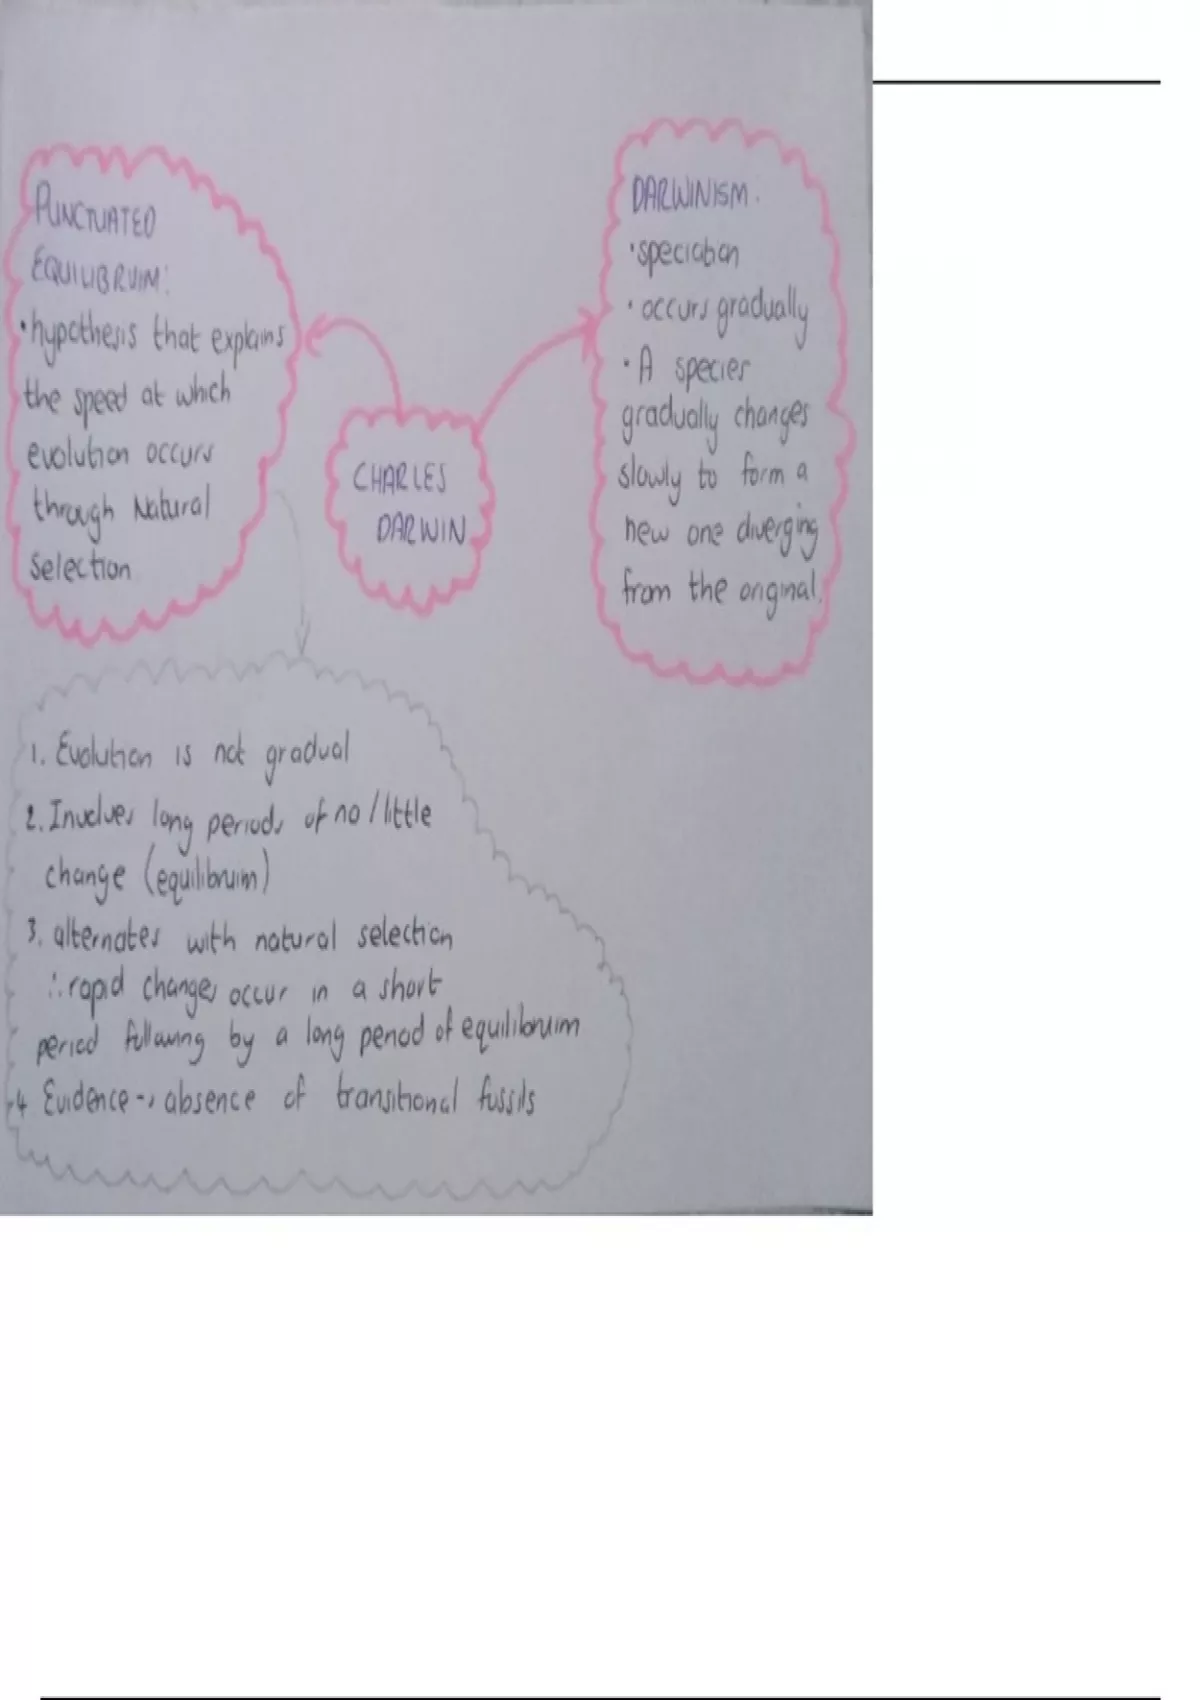 PUNCTUATED
EQUILIBRUIM:
• hypothesis that explains
the speed at which
evolution occurs
through Natural
selection
CHARLES
DARWIN
DARWINISM.
• speciation
• occurs gradually
• A species
gradually changes
slowly to form a
new one diverging
from the original.
1. Evolution is not gradual
2. Involves long periods of no/little
change (equilibruim)
3. alternates with natural selection
∴ rapid changes occur in a short
period following by a long period of equilibruim
4 Evidence → absence of transitional fossils